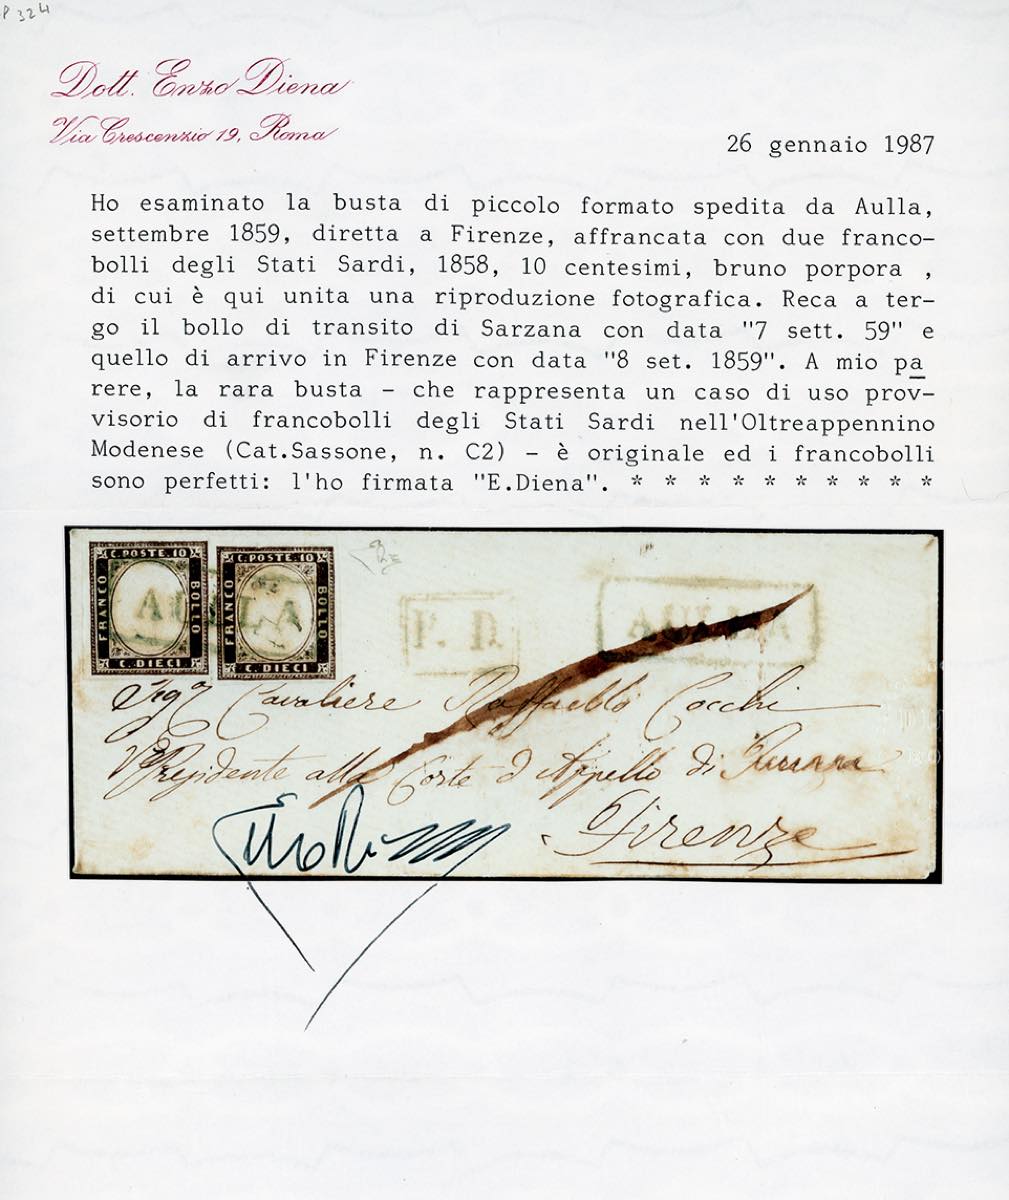 P 324
Dott. Enzo Diena
Via Crescenzio 19, Roma
26 gennaio 1987
Ho esaminato la busta di piccolo formato spedita da Aulla,
settembre 1859, diretta a Firenze, affrancata con due franco-
bolli degli Stati Sardi, 1858, 10 centesimi, bruno porpora ,
di cui è qui unita una riproduzione fotografica. Reca a ter-
go il bollo di transito di Sarzana con data "7 sett. 59" e
quello di arrivo in Firenze con data "8 set. 1859". A mio pa
rere, la rara busta - che rappresenta un caso di uso prov-
visorio di francobolli degli Stati Sardi nell'Oltreappennino
Modenese (Cat.Sassone, n. C2) - è originale ed i francobolli
sono perfetti: l'ho firmata "E.Diena". * * * * * * * * * *
C. POSTE. 10 C. POSTE. 10
FRANCO BOLLO FRANCO BOLLO
AULLA P. D. AULLA
C. DIECI. C. DIECI.
Sigr Cavaliere Raffaello Cocchi
Vo Presidente alla Corte d'Appello di
Firenze